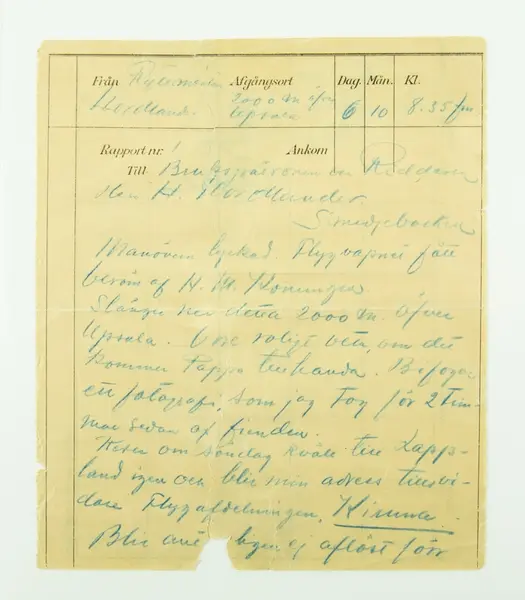 Från Ryttmästar Afgångsort Dag. Mån. Kl.
Nordland. 2000 m öfver Upsala 6 10 8.35 fm
Rapport nr. 1 Ankom
Till Brukspatronen och Riddaren
Herr H. Nordlander
Smedjebacken
Manövern lyckad. Flygvapnet fått
beröm af H. M. Konungen
Slänger ner detta 2000 m. öfver
Upsala. Vore roligt veta, om det
kommer Pappa tillhanda. Bifogar
ett fotografi, som jag tog för 2 tim-
mar sedan af fienden.
Reser om söndag kväll till Lapp-
land igen och blir min adress tillsvi-
dare Flygafdelningen, Kiruna.
Blir ej aflöst förr